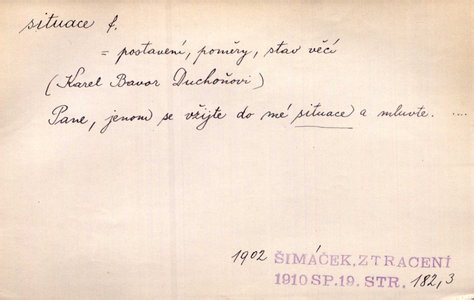 situace f.
= postavení, poměry, stav věcí
(Karel Bavor Duchoňovi)
Pane, jenom se vžijte do mé situace a mluvte. ....
1902 ŠIMÁČEK, ZTRACENÍ
1910 SP. 19. STR. 182,3